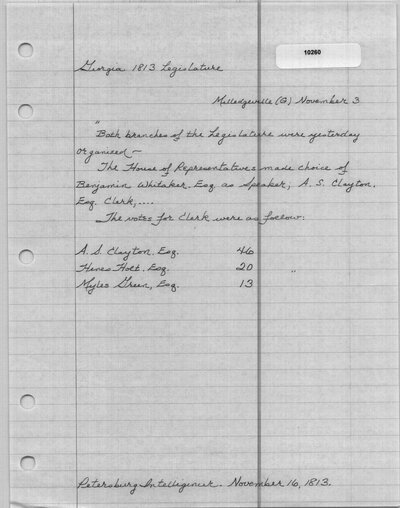 10260
Georgia 1813 Legislature
Milledgeville (G) November 3
"
Both branches of the Legislature were yesterday
organized —
The House of Representatives made choice of
Benjamin Whitaker. Esq as Speaker; A. S. Clayton.
Esq. Clerk, ....
The votes for Clerk were as follow:
A. S. Clayton. Esq. 46
Hines Holt. Esq. 20 "
Myles Green, Esq. 13
Petersburg Intelligencer. November 16, 1813.